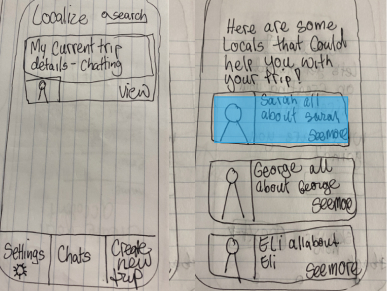 Localize
search
My Current trip
details - Chatting
view
Settings
Chats
Create
new
trip
Here are some
Locals that Could
help you with
your trip!
Sarah all
about sarah
See more
George all
about George
See more
Eli all about
Eli
See more